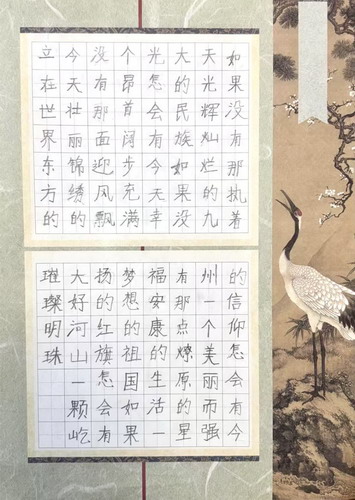 如果没有那执着
的信仰怎会有今
天光辉灿烂的九
州一个美丽而强
大的民族如果没
有那点燎原的星
光怎会有今天幸
福安康的生活一
个昂首阔步充满
梦想的祖国如果
没有那面迎风飘
扬的红旗怎会有
今天壮丽锦绣的
大好河山一颗屹
立在世界东方的
璀璨明珠